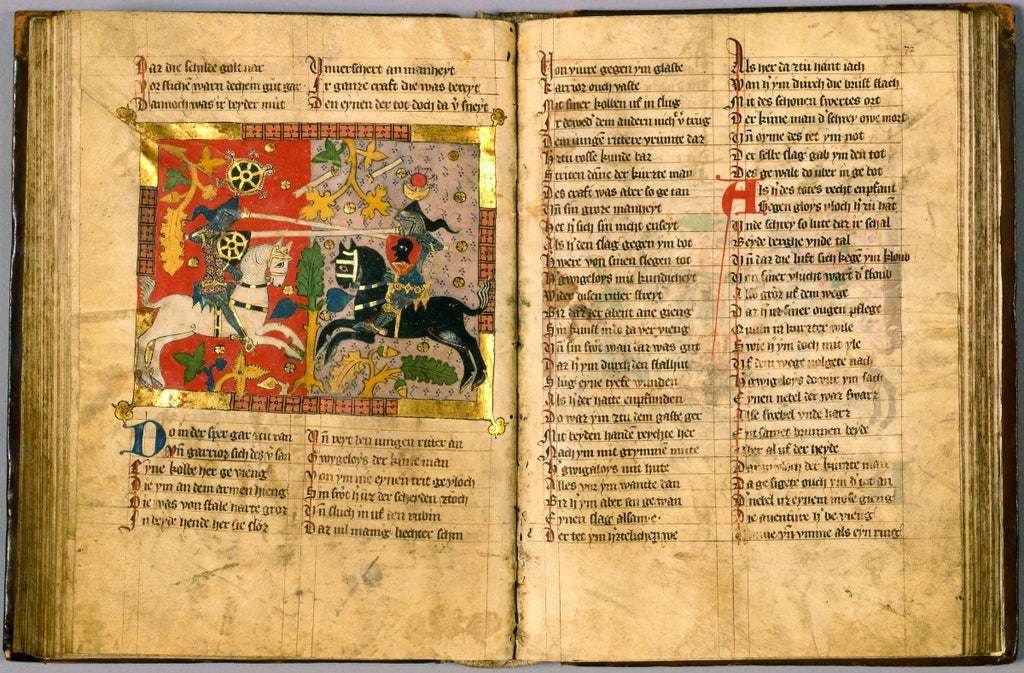 Daz die schilde golt var
Vor stichē warn dechein gūt gar
Dannoch was ir beyder mūt
Vnuerschert an manheyt
Ir ganze craft die was bereyt
Den eynen der tot doch da v̄ sneyt
Do in der sper gar zcu ran
Vn̄ garrior sich des v̄ san
Eyne kolbe her ge vieng
Die ym an dem armen hieng
Die was von stale harte groz
In beyde hende her sie sloz
Vn̄ reyt den iungen ritter an
Gwygeloys der kune man
Von ym eynen trit geyloch
Sin swōt h̄ uz der scheyden zcoch
Vn̄ sluch in uf den rubin
Daz uil manig liechter schin
Von viure gegen ym glaste
Karrior ouch vaste
Mit siner kolben uf in slug
Ir ewed dem andern nich v̄ trūg
Dem iunge rittere vrūnte daz
H̄ zcu rosse kunde baz
Striten dāne der kurzte man
Des craft was aber so ge tan
Vn̄ sin groze manheyt
Het h̄ sich sin nicht enseyt
Als h̄ den slag gegen ym bot
H̄ were von sinen slegen tot
H̄ gwigeloys mit kundicheyt
Wider disen ritter streyt
Biz daz der abent ane gieng
Sin kunst in āe da ver vieng
Vn̄ sin swōt wan iaz was gut
Daz h̄ ym durch den stalhut
Slug eyne tyefe wunden
Als h̄ der hatte enpfunden
Do waz ym zcu dem gaste ger
Mit beyden handē reychte her
Nach ym mit grymme mute
H̄ gwigaloys mit hute
Alles vor ym wancte dan
Biz h̄ ym aber an gewan
Eynen slag alsam e
Der tet ym h̄tzelichen we
72
Als her da zcu hant iach
Wan h̄ ym durch die brust stach
Mit des schonen swertes ort
Der kūne man d̄ schrey owe mort
Vn̄ oyme des tet ym not
Der selbe slag gab ym den tot
Des ge walt do uber in ge bot
Als h̄ des totes recht enpfant
Gegen gloys vloch h̄ zcu hāt
Vnde schrey so lute daz ir schal
Beyde berghe vnde tal
Vn̄ daz die luft sich kegē ym kloub
Von siner vlucht wart d̄ stoub
Also groz uf dem wege
Daz h̄ uz siner ougen pflege
Quam in kurzter wile
Swie h̄ ym doch mit yle
Vf dem wege volgete nach
H̄ gwigeloys do vur ym sach
Eynen nebel der waz swarz
Alse swebel vnde harz
Ent samet brunnen beyde
Vber al uf der heyde
Dar in vloch der kurzte man
Da ge sigete ouch ym d̄ tot an
D̄ nebel uz eynem mose gieng
Die auenture h̄ be vieng
Vmme vn̄ vmme als eyn ring